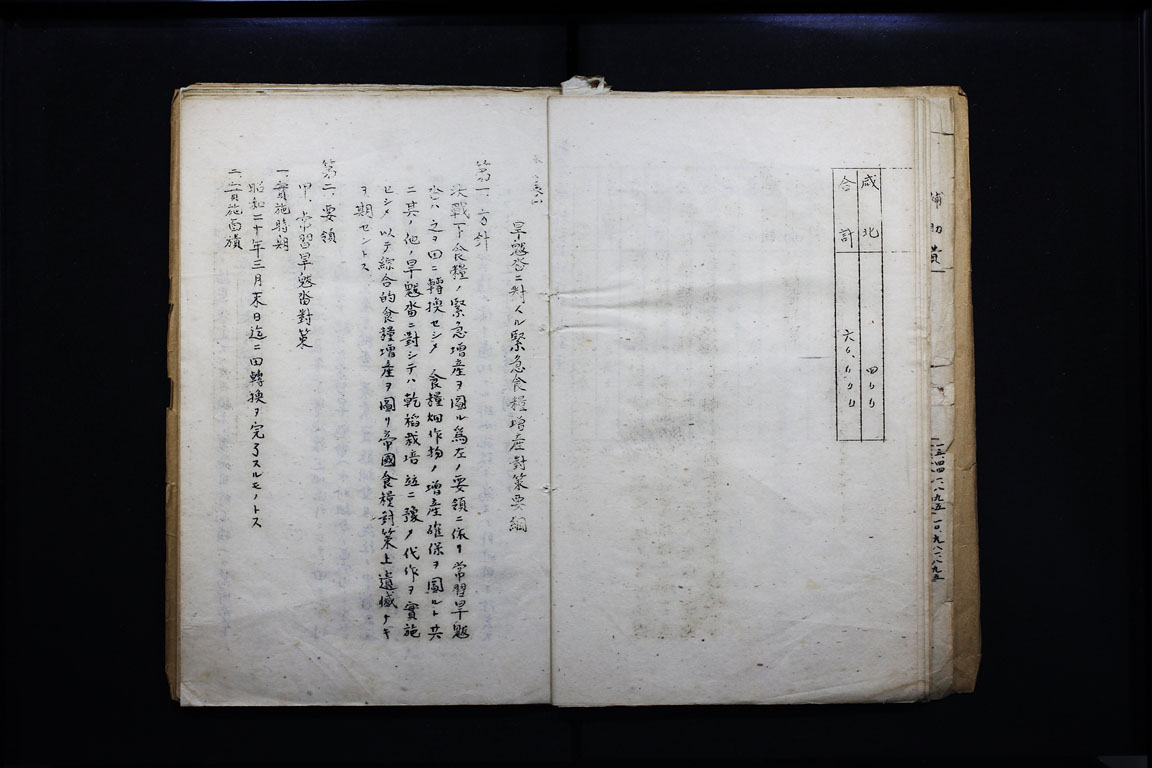 補助費
咸北 四〇〇
合計
旱魃畓ニ對スル緊急食糧增產對策要綱
第一、方針
決戰下食糧ノ緊急增產ヲ圖ル爲左ノ要領ニ依リ常習旱魃
畓ハ之ヲ田ニ轉換セシメ 食糧畑作物ノ增產確保ヲ圖ルト共
ニ其ノ他ノ旱魃畓ニ對シテハ乾稻栽培並ニ豫メ代作ヲ實施
セシメ以テ綜合的食糧增產ヲ圖リ帝國食糧對策上遺憾ナキ
ヲ期セントス
第二、要領
甲、常習旱魃畓對策
一、實施時期
昭和二十年三月末日迄ニ田轉換ヲ完了スルモノトス
二、實施面積